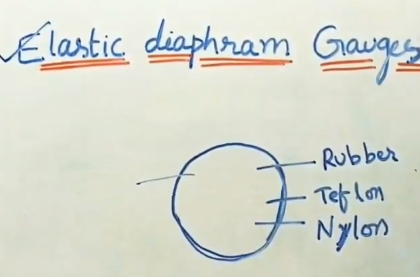 Elastic diaphram Gauges
Rubber
Teflon
Nylon